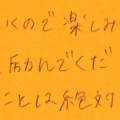 くので楽しみ
励んでくだ
ことは絶対